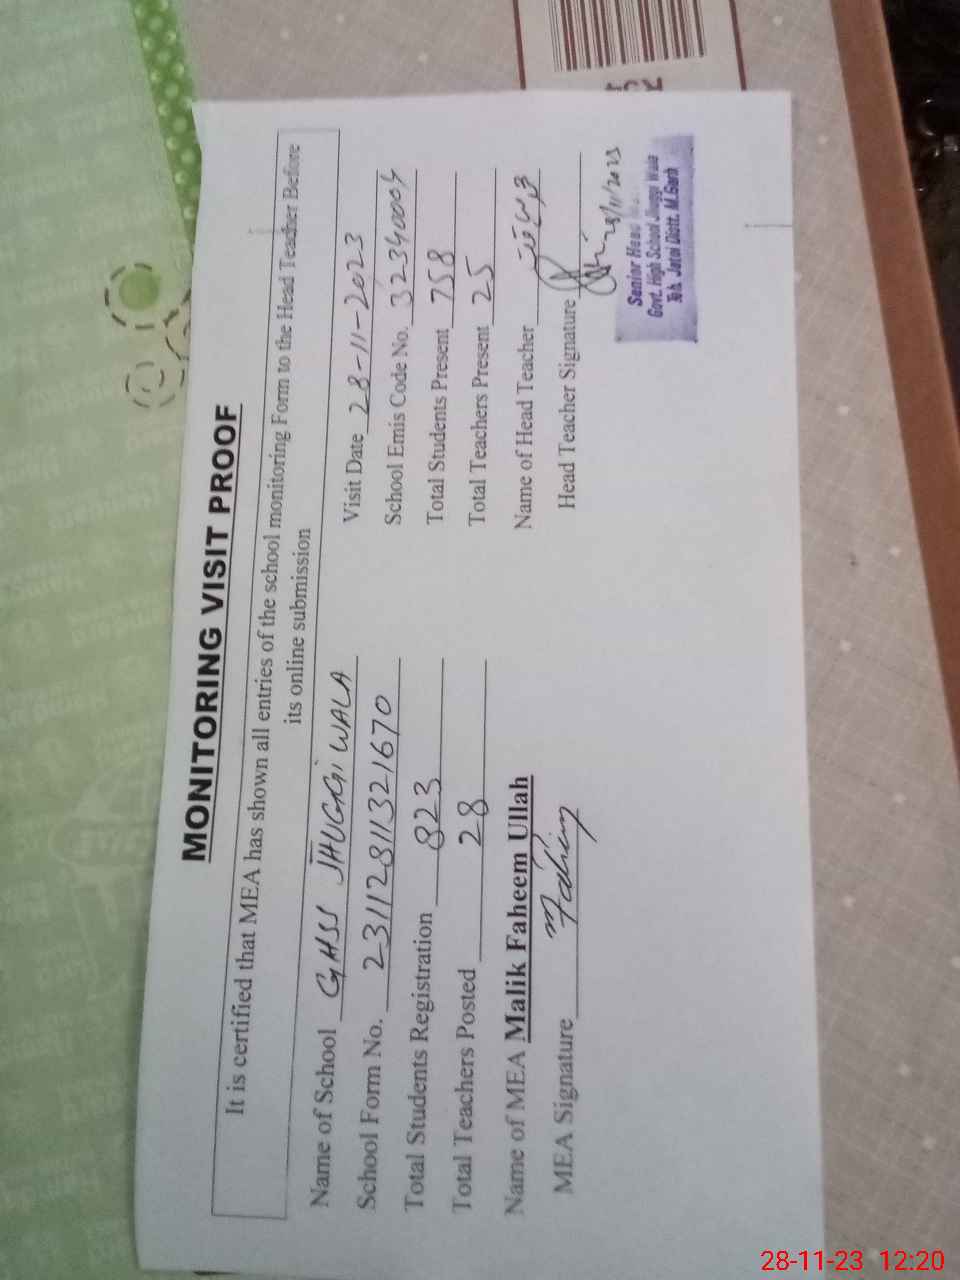 MONITORING VISIT PROOF
It is certified that MEA has shown all entries of the school monitoring Form to the Head Teacher Before
its online submission
Name of School GHSS JHUGGI WALA
Visit Date 28-11-2023
School Form No. 23112811321670
School Emis Code No. 32340004
Total Students Registration 823
Total Students Present 758
Total Teachers Posted 28
Total Teachers Present 25
Name of MEA Malik Faheem Ullah
Name of Head Teacher
MEA Signature Fahim
Head Teacher Signature
28/11/2023
Senior Head
Govt. High School Jhuggi Wala
Teh. Jatoi Distt. M.Garh
28-11-23 12:20